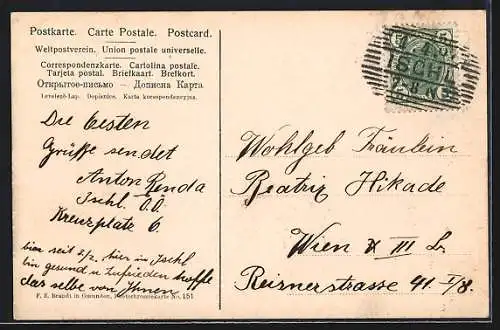 Postkarte. Carte Postale. Postcard.
Weltpostverein. Union postale universelle.
Correspondenzkarte. Cartolina postale.
Tarjeta postal. Brielkaart. Brefkort.
Открытое-письмо — Дописна Карта
Levelező-Lap. Dopisnice. Karta korespondencyjna.
Die besten
Grüße sendet
Anton Renda
Ischl. O.Ö.
Kreuzplatz 6.
bin seit 2/2. hier in Ischl
bin gesund u zufrieden hoffe
das selbe von Ihnen
F. E. Brandt in Gmunden, No. 151
5
ISCHL
Wohlgeb Fräulein
Beatrix Hikade
Wien III
Reisnerstrasse 41. I/8.